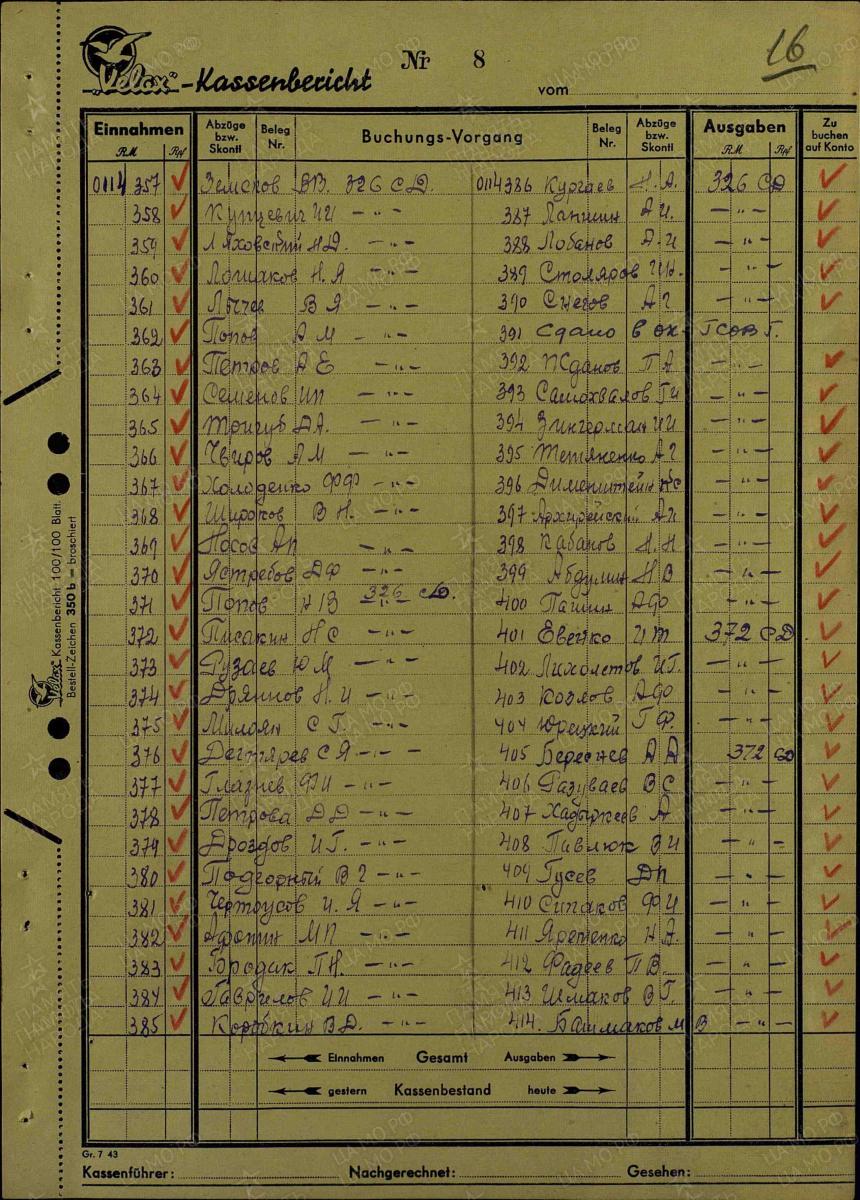 „Velox“-Kassenbericht Nr 8 vom
16
Einnahmen RM Rpf Abzüge bzw. Skonti Beleg Nr. Buchungs-Vorgang Beleg Nr. Abzüge bzw. Skonti Ausgaben RM Rpf Zu buchen auf Konto
0114 357 Земсков В.В. 326 СД. 0114386 Кургаев Н.А. 326 СД
358 Купцевич И И — " — 387 Лапшин А И. — " —
359 Ляховский Н.Д. — " — 388 Лобанов А.И — " —
360 Лошаков Н.Я — " — 389 Столяров И.Н. — " —
361 Лычев В Я — " — 390 Снегов А Г — " —
362 Попов А М — " — 391 Сдано в ок
363 Петров А Е — " — 392 Жданов П А — " —
364 Семенов ИП — " — 393 Самохвалов Г И — " —
365 Д.А. — " — 394 Зингерман И И — " —
366 Чвиров А М — " — 395 А Г — " —
367 Холоденко ФФ — " — 396 Дименштейн — " —
368 Широков В Н. — " — 397 Архирейский А И — " —
369 Носов А П — " — 398 Кабанов Н.Н — " —
370 Ястребов Д Ф — " — 399 Абдулин Н В — " —
371 Попов 326 сд. 400 Папшин А Ф — " —
372 Писакин Н С — " — 401 Евенко И Т 372 СД.
373 Рузаев Ю М — " — 402 Лихолетов И.Г. — " —
374 Дряннов Н. И — " — 403 Козлов А Ф — " —
375 Милоян С Г. — " — 404 Юрецкий Г Ф. — " —
376 Дегтярев С Я — " — 405 Береснев А А 372 сд
377 Глазнев Ф И — " — 406 Разуваев В С — " —
378 Петрова Д Д — " — 407 Хадыркеев А — " —
379 Дроздов И Г. — " — 408 Павлюк В И — " —
380 Подгорный В Г — " — 409 Гусев Д П — " —
381 Чертоусов И. Я — " — 410 Сипаков Ф И — " —
382 Афонин М П — " — 411 Яременко Н А. — " —
383 Бродак П Н. — " — 412 Фадеев П В. — " —
384 Гаврилов И И — " — 413 Шмаков В Г. — " —
385 Коробкин В Д. — " — 414. Башмаков М В — " —
Einnahmen Gesamt Ausgaben
gestern Kassenbestand heute
Gr. 7 43
Kassenführer: Nachgerechnet: Gesehen:
Velox Kassenbericht 100/100 Blatt.
Bestell-Zeichen 350 b = broschiert